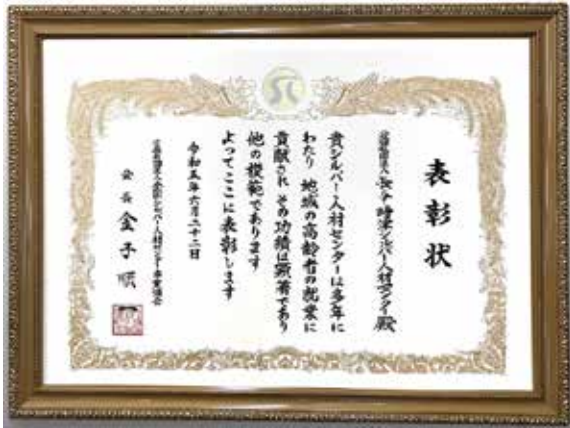 表彰状
公益社団法人 長与・時津シルバー人材センター殿
貴シルバー人材センターは多年に
わたり 地域の高齢者の就業に
貢献され その功績は顕著であり
他の模範であります
よってここに表彰します
令和五年六月二十二日
公益社団法人全国シルバー人材センター事業協会
会長 金子順一